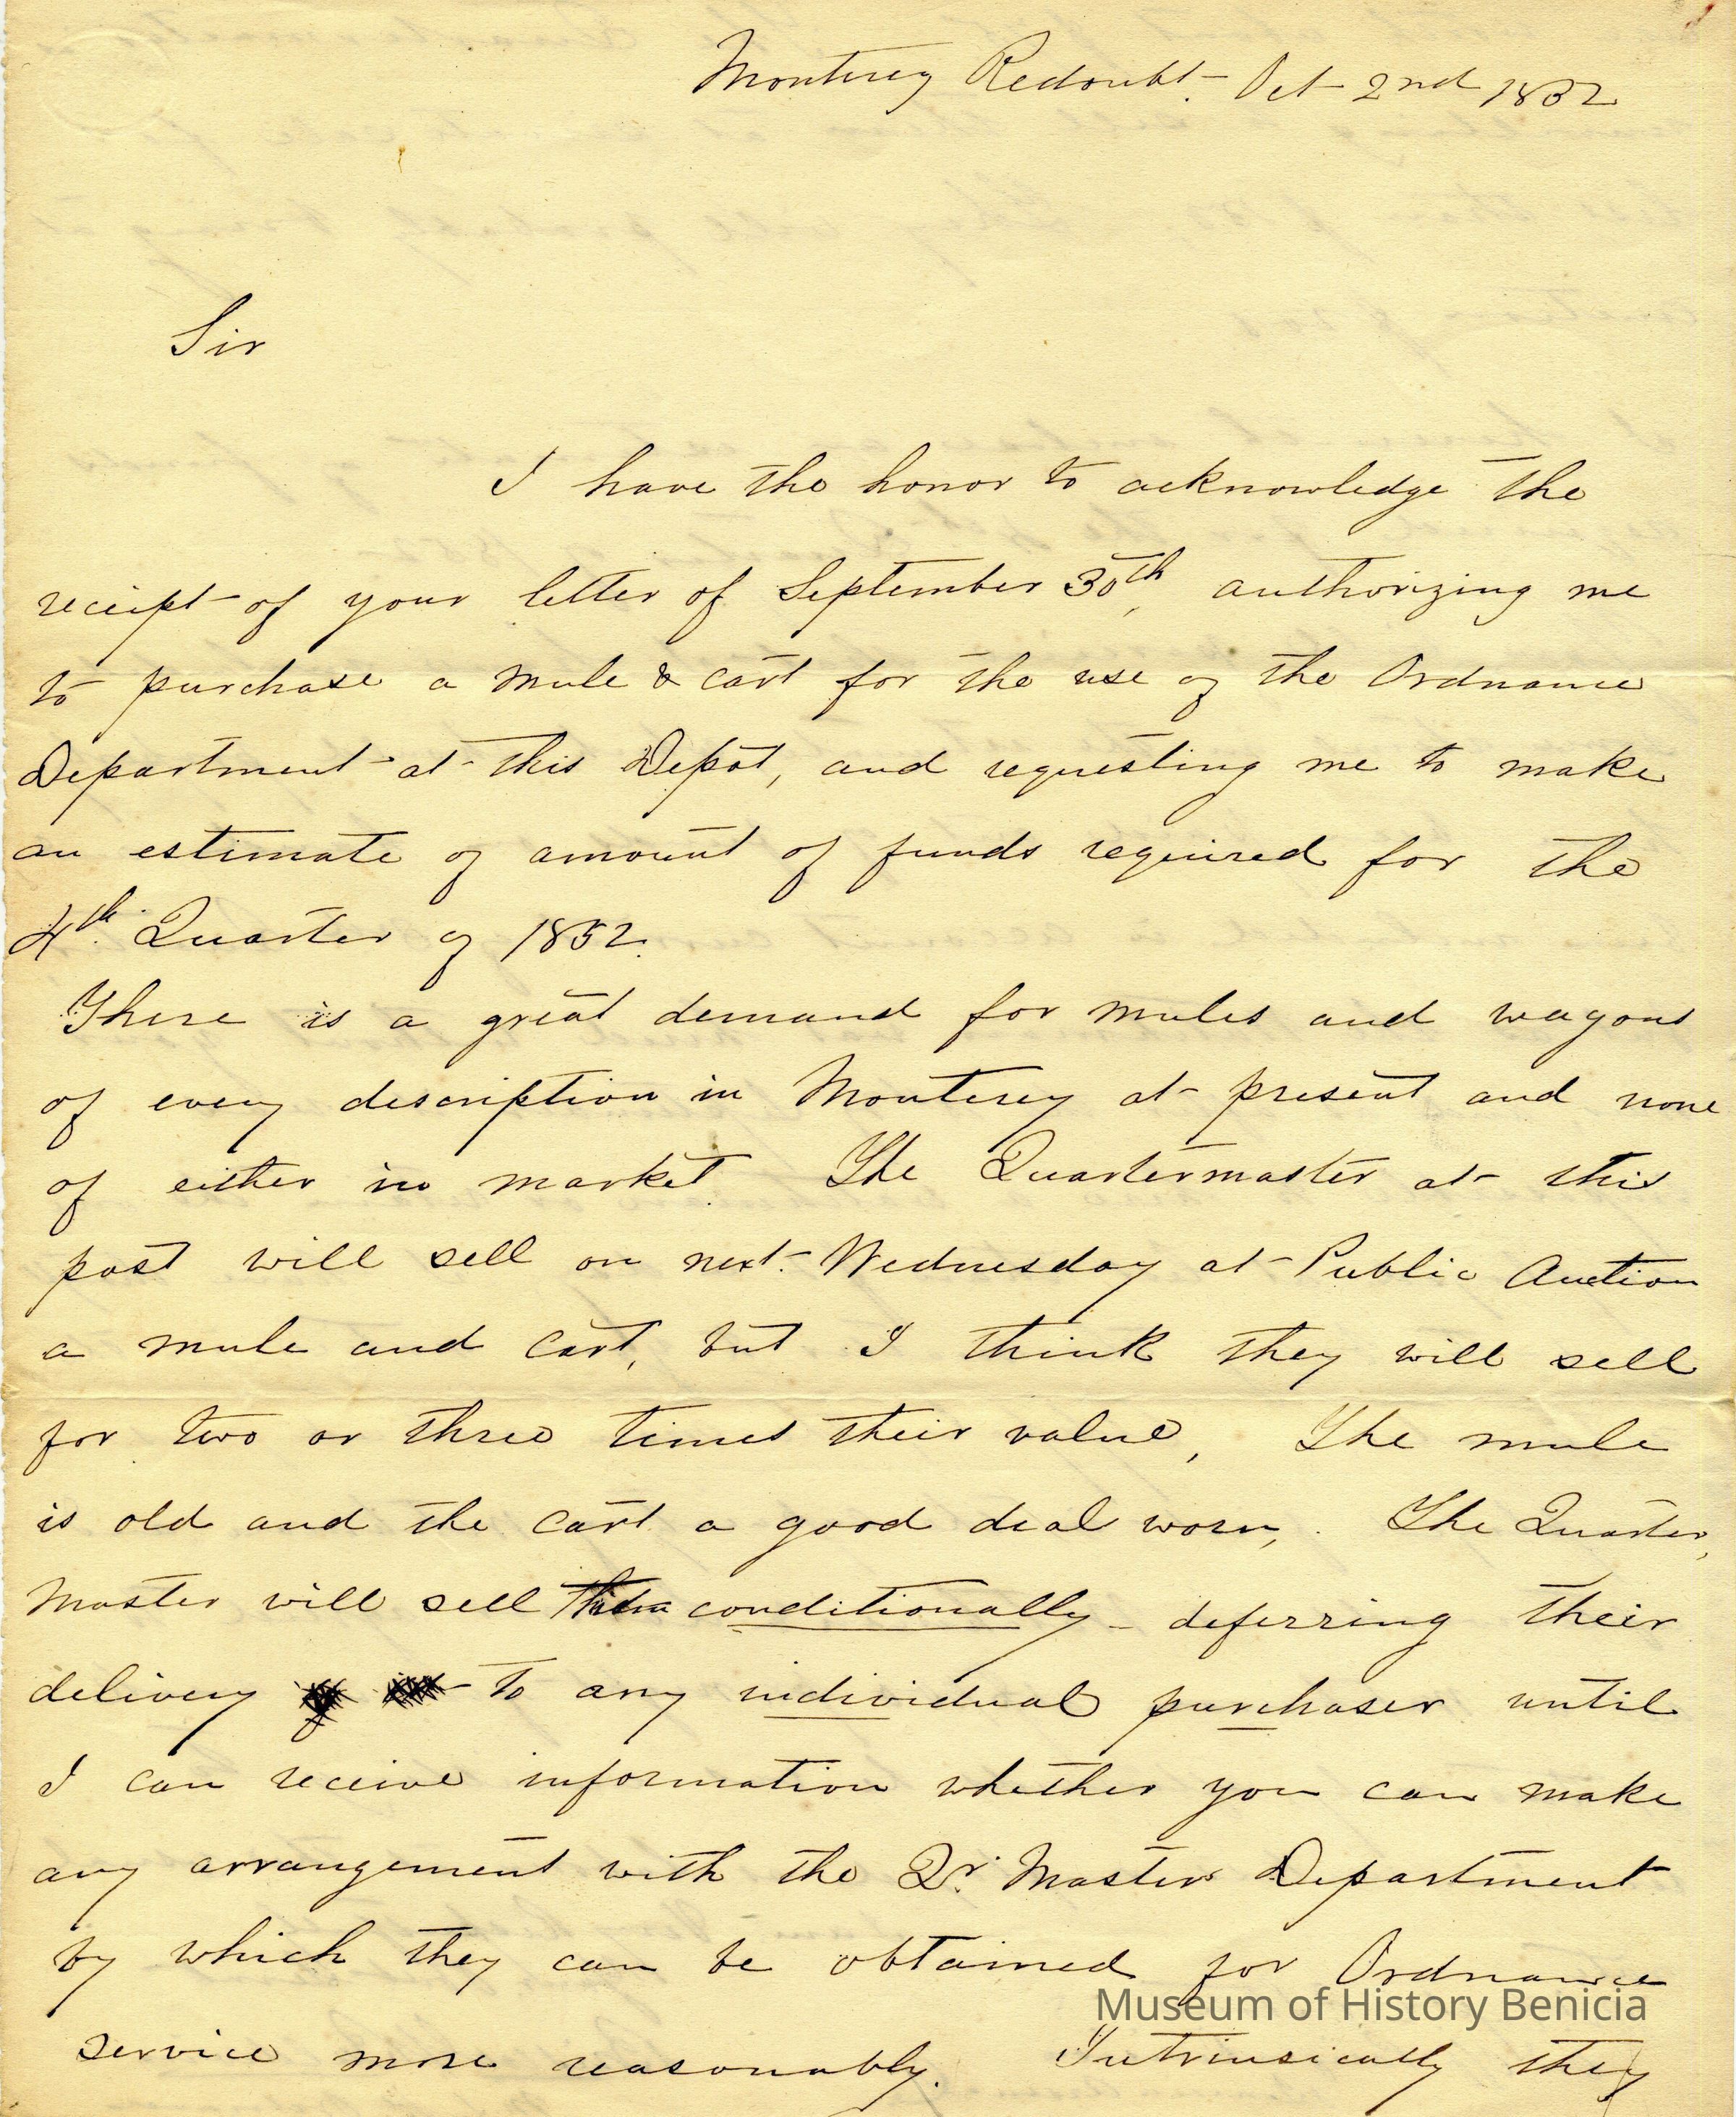 Monterey Redoubt. Oct 2nd 1852
Sir
I have the honor to acknowledge the
receipt of your letter of September 30th, authorizing me
to purchase a mule & cart for the use of the Ordnance
Department at this Depot, and requesting me to make
an estimate of amount of funds required for the
4th. Quarter of 1852.
There is a great demand for mules and wagons
of every description in Monterey at present and none
of either in market. The Quartermaster at this
post will sell on next Wednesday at Public Auction
a mule and cart, but I think they will sell
for two or three times their value, The mule
is old and the cart a good deal worn,. The Quarter,
Master will sell them conditionally - deferring their
delivery to any individual purchaser until
I can receive information whether you can make
any arrangement with the Qr. Masters Department
by which they can be obtained for Ordnance
Museum of History Benicia
service more reasonably. Intrinsically they